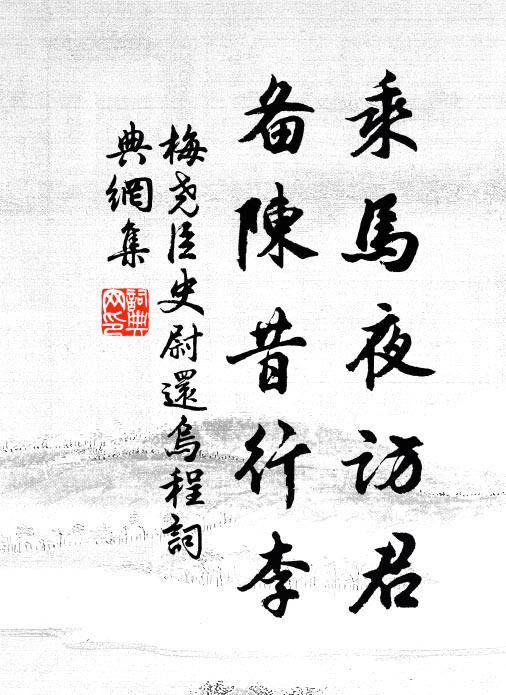 乘馬夜访君
备陳昔行李
梅尧臣史尉還烏程詞
典網集
詞典網印